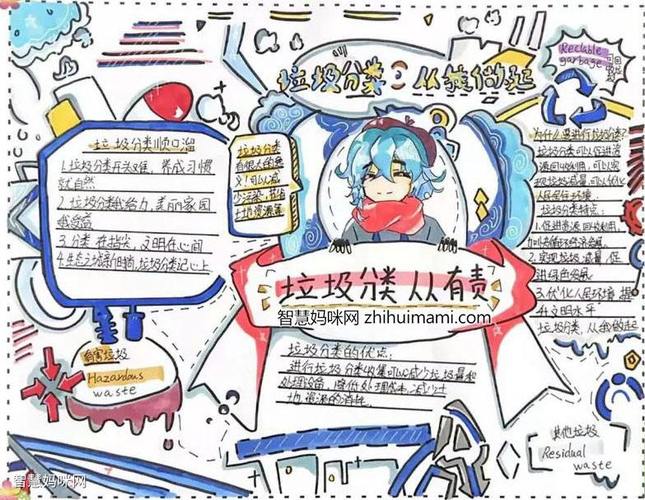 垃圾分类:从我做起
Reclable
garbage
垃圾分类顺口溜
1.垃圾分类并不难,养成习惯
就自然
2.垃圾分类我给力,美丽家园
我受益
3.分类在指尖,文明在心间
垃圾分类记心上
垃圾分类
少污染,节省
土地资源等
为什么要进行垃圾分类?
垃圾分类可以促进资
源回收利用,可以实
现垃圾减量,可以优化
人居环境.
垃圾分类特点:
1.促进资源回收利用,
2.实现垃圾减量,促
进绿色发展
3.优化人居环境,提
升文明水平
垃圾分类,从我做起
垃圾分类 人人有责
智慧妈咪网 zhihuimami.com
垃圾分类的优点:
进行垃圾分类收集可以减少垃圾处理量和
处理设备,降低处理成本,减少土
地资源的消耗
有害垃圾
Hazardous
waste
其他垃圾
Residual
waste
智慧妈咪网